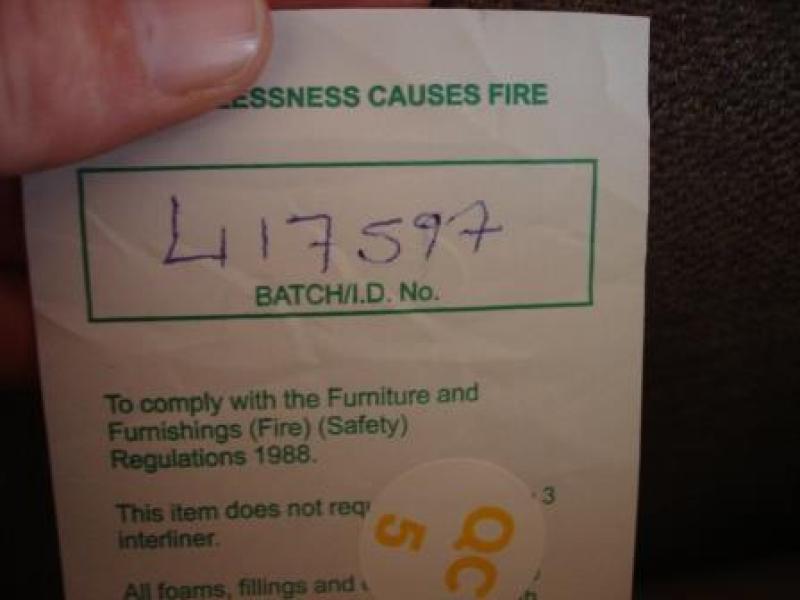 LESSNESS CAUSES FIRE
417597
BATCH/I.D. No.
To comply with the Furniture and
Furnishings (Fire) (Safety)
Regulations 1988.
This item does not requ 3
interliner.
All foams, fillings and
QC
5